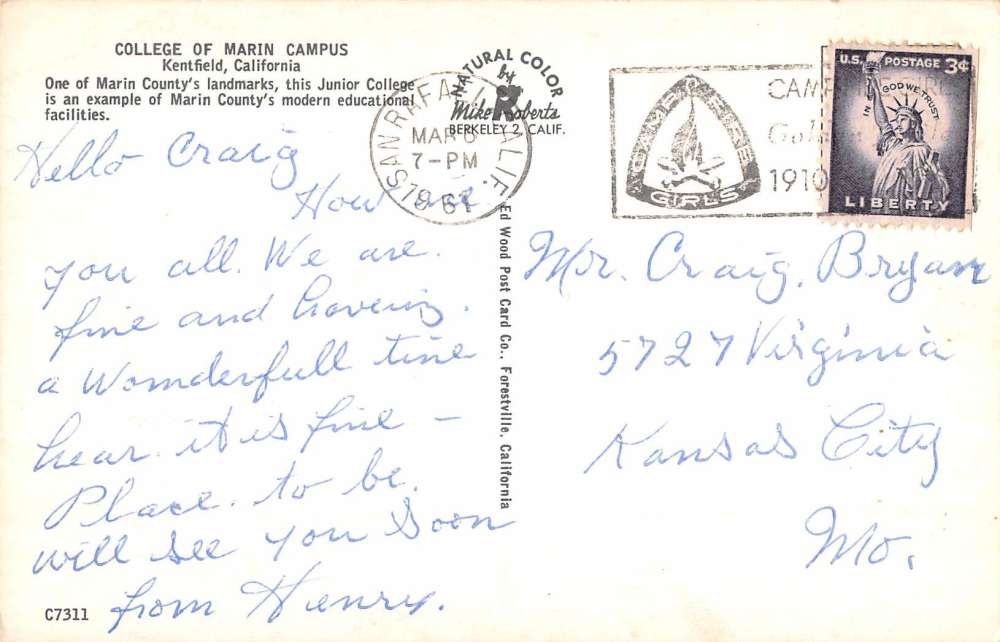 COLLEGE OF MARIN CAMPUS
Kentfield, California
One of Marin County's landmarks, this Junior College
is an example of Marin County's modern educational
facilities.
Hello Craig
How are
you all. We are.
fine and haveing.
a Womderfull time
hear. it is fine –
Place. to be.
will see you Soon
from Henry.
C7311
NATURAL COLOR
by
Mike Roberts
BERKELEY 2, CALIF.
SAN RAFAEL CALIF.
MAR 6
7-PM
1961
Ed Wood Post Card Co., Forestville, California
CAMP FIRE
GIRLS
CAMP
Gol
1910
U.S. POSTAGE 3¢
IN GOD WE TRUST
LIBERTY
Mr. Craig. Bryan
5727 Virginia
Kansas City
Mo.